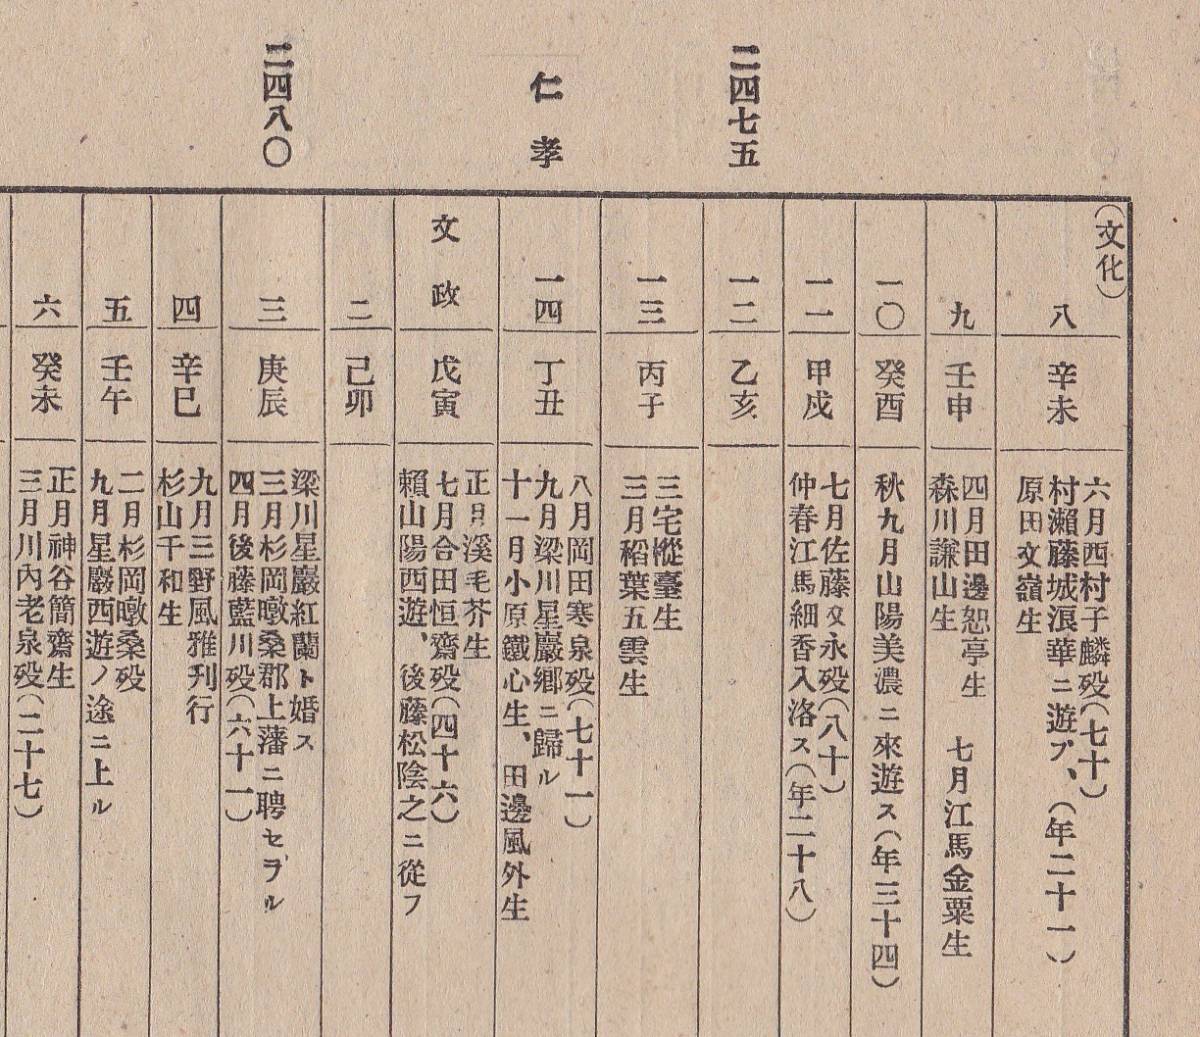 二四七五
仁孝
二四八〇
(文化)
八
辛未
六月西村子麟歿(七十)
村瀨藤城浪華ニ遊ブ、(年二十一)
原田文嶺生
九
壬申
四月田邊恕亭生　七月江馬金粟生
森川謙山生
一〇
癸酉
秋九月山陽美濃ニ來遊ス(年三十四)
一一
甲戌
七月佐藤文永歿(八十)
仲春江馬細香入洛ス(年二十八)
一二
乙亥
一三
丙子
三宅樅臺生
三月稻葉五雲生
一四
丁丑
八月岡田寒泉歿(七十一)
九月梁川星巖鄕ニ歸ル
十一月小原鐵心生、田邊風外生
文政
戊寅
正月溪毛芥生
七月合田恒齋歿(四十六)
賴山陽西遊、後藤松陰之ニ從フ
二
己卯
三
庚辰
梁川星巖紅蘭ト婚ス
三月杉岡暾桑郡上藩ニ聘セラル
四月後藤藍川歿(六十一)
四
辛巳
九月三野風雅刋行
杉山千和生
五
壬午
二月杉岡暾桑歿
九月星巖西遊ノ途ニ上ル
六
癸未
正月神谷簡齋生
三月川內老泉歿(二十七)